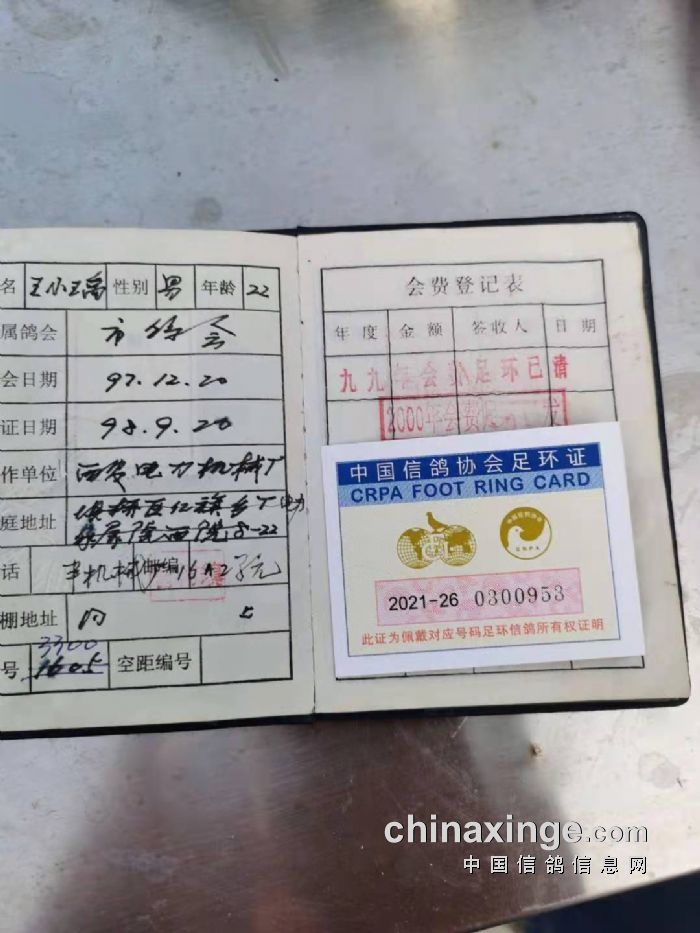 名 王小瑀 性别 男 年龄 22
属鸽会 市鸽会
会日期 97.12.20
证日期 98.9.20
作单位 西安电力机械厂
庭地址
8-22
话 邮编
棚地址 同 上
3300
号 1605 空距编号
会费登记表
年度 金额 签收人 日期
九九年会费足环已清
2000年会费足环已发
中国信鸽协会足环证
CRPA FOOT RING CARD
2021-26 0300953
此证为佩戴对应号码足环信鸽所有权证明
chinaxinge.com
中国信鸽信息网